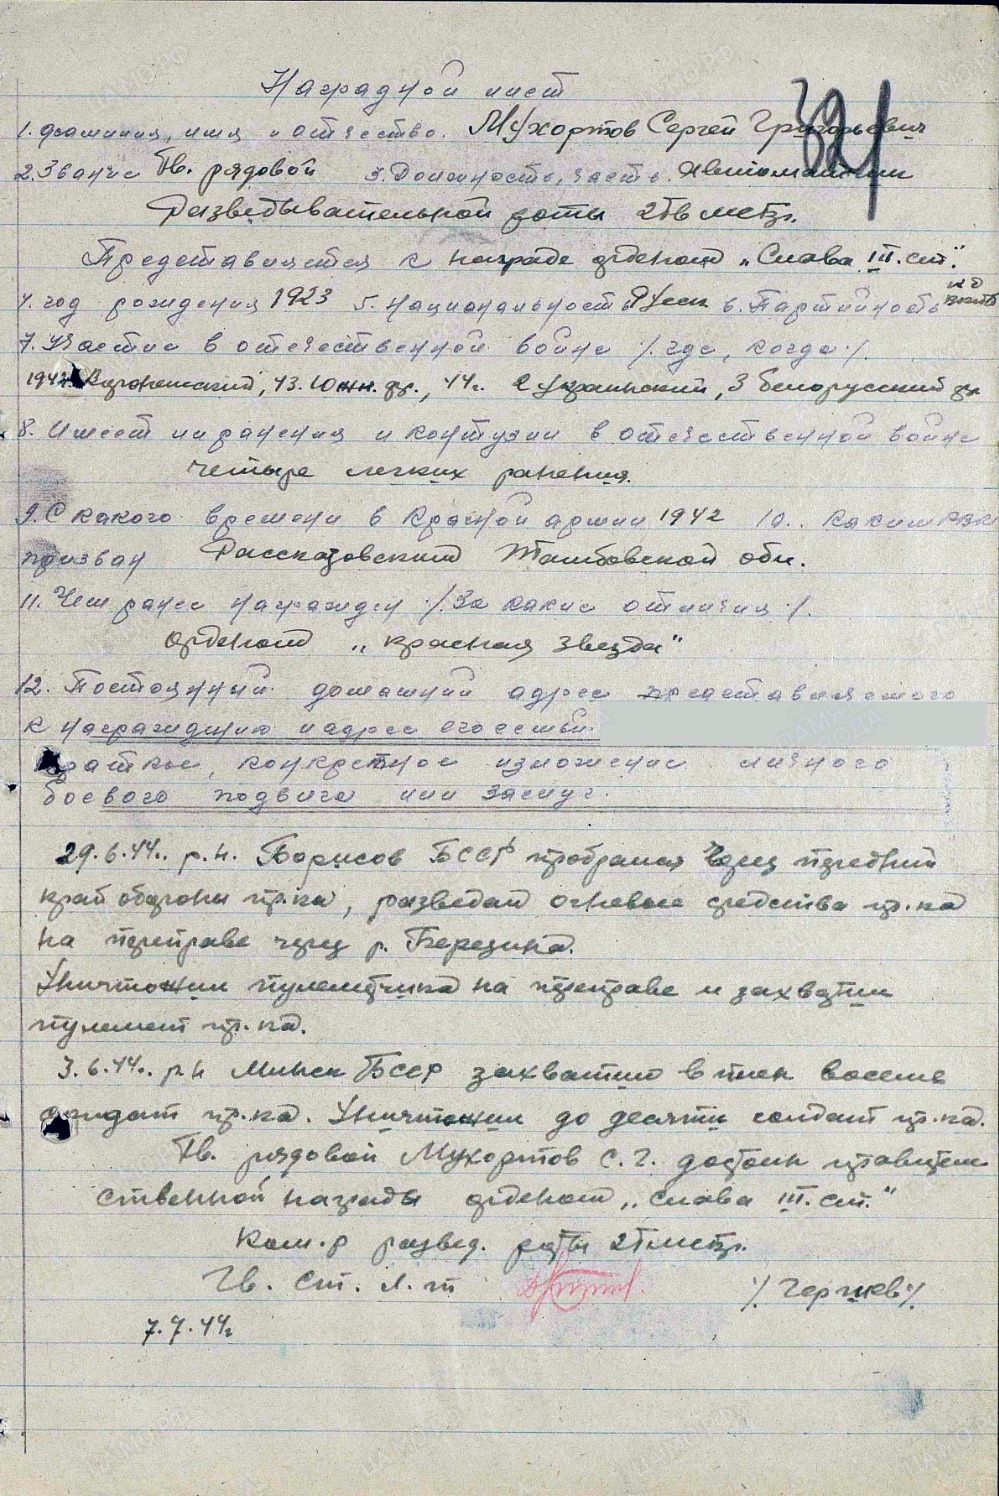 Наградной лист
321
1. фамилия, имя и отчество. Мухортов Сергей Григорьевич
2. Звание Гв. рядовой 3. Должность, часть. Автоматчик
Разведывательной роты 2 Гв мсбр.
Представляется к награде орденом „Слава III. ст."
4. год рождения 1923 5. Национальность Русск 6. Партийность к/д ВКПб
7. Участие в отечественной войне /. где, когда /.
1942 Воронежский, 43. Южн. фр., 44г. 2 Украинский, 3 Белорусский фр
8. Имеет ли ранения и контузии в отечественной войне
четыре легких ранения.
9. С какого времени в Красной армии 1942 10. Каким РВК
призван Рассказовский Тамбовской обл.
11. Чем ранее награжден /. За какие отличия /.
орденом „Красная Звезда"
12. Постоянный домашний адрес представляемого
к награждению и адрес его семьи.
Краткое, конкретное изложение личного
боевого подвига или заслуг.
29.6.44.. р.н. Борисов БССР пробрался через передний
край обороны пр.ка, разведал огневые средства пр.ка
на переправе через р. Березина.
Уничтожил пулеметчика на переправе и захватил
пулемет пр.ка.
3.6.44.. р н Минск БССР захватил в плен восемь
солдат пр.ка. Уничтожил до десяти солдат пр.ка.
Гв. рядовой Мухортов С. Г. достоин правитель
ственной награды орденом „Слава III. ст."
Ком.р развед. роты 2 Гв мсбр.
Гв. Ст. л. т /. /.
7.7.44г